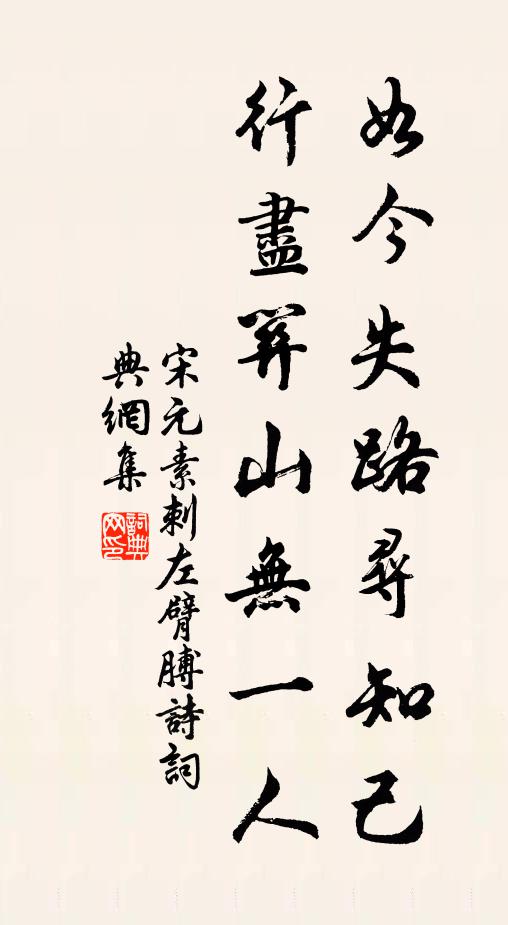 如今失路尋知己
行盡關山無一人
宋元素刺左臂膊詩詞
典網集
詞典
网印